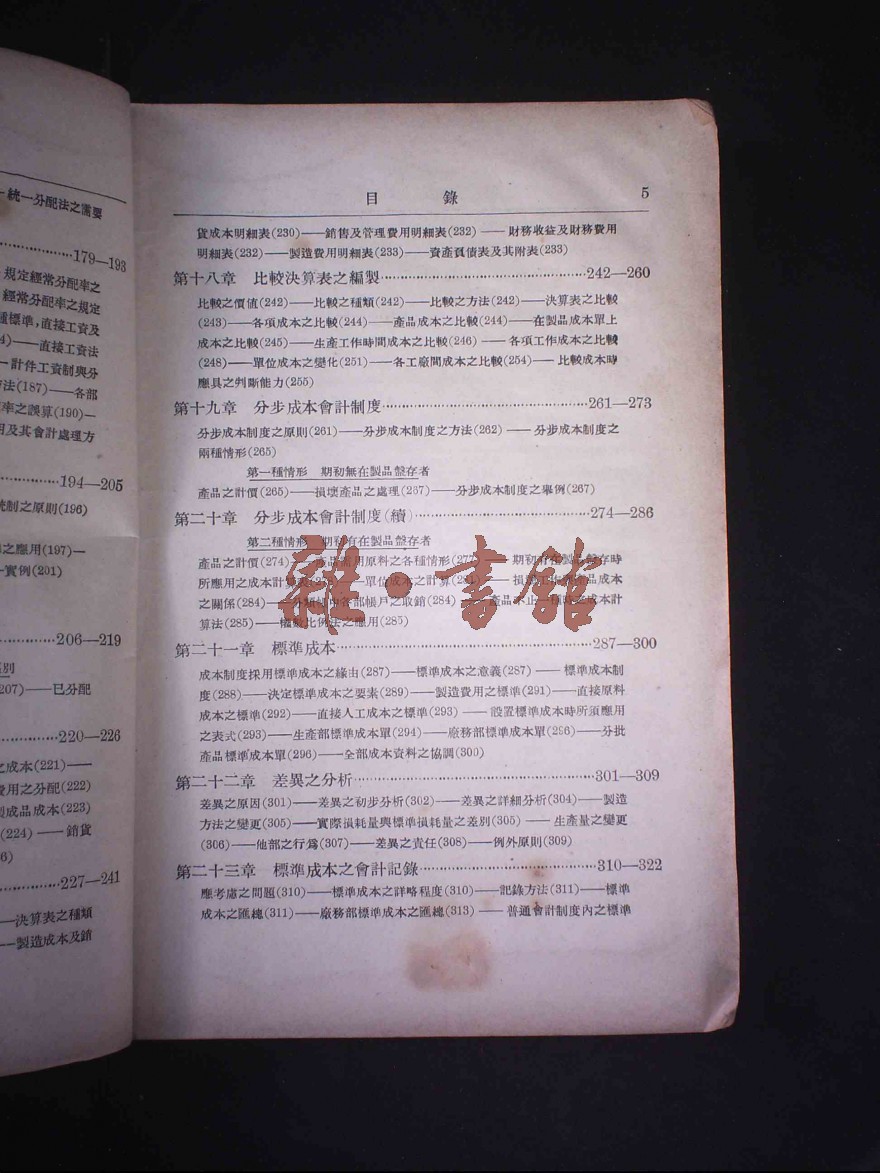 統一分配法之需要
179—193
規定經常分配率之
經常分配率之規定
種標準,直接工資及
4)——直接工資法
計件工資制與分
法(187)——各部
率之誤算(190)—
用及其會計處理方
194—205
統制之原則(196)
之應用(197)—
實例(201)
206—219
別
207)——已分配
220—226
之成本(221)——
費用之分配(222)
製成品成本(223)
(224)——銷貨
6)
227—241
—決算表之種類
—製造成本及銷
目 錄 5
貨成本明細表(230)——銷售及管理費用明細表(232)——財務收益及財務費用
明細表(232)——製造費用明細表(233)——資產負債表及其附表(233)
第十八章 比較決算表之編製……242—260
比較之價値(242)——比較之種類(242)——比較之方法(242)——決算表之比較
(243)——各項成本之比較(244)——產品成本之比較(244)——在製品成本單上
成本之比較(245)——生產工作時間成本之比較(246)——各項工作成本之比較
(248)——單位成本之變化(251)——各工廠間成本之比較(254)——比較成本時
應具之判斷能力(255)
第十九章 分步成本會計制度……261—273
分步成本制度之原則(261)——分步成本制度之方法(262)——分步成本制度之
兩種情形(265)
第一種情形 期初無在製品盤存者
產品之計價(265)——損壞產品之處理(267)——分步成本制度之舉例(267)
第二十章 分步成本會計制度(續)……274—286
第二種情形 期初有在製品盤存者
產品之計價(274)——產品需用原料之各種情形(277)——期初有在製品盤存時
所應用之成本計算表——單位成本之計算——損壞工作與產品成本
之關係(284)——分類帳中各部帳戶之取銷(284)——產品不止一種時之成本計
算法(285)——比例法之應用(285)
雜·書館
第二十一章 標準成本……287—300
成本制度採用標準成本之緣由(287)——標準成本之意義(287)——標準成本制
度(288)——決定標準成本之要素(289)——製造費用之標準(291)——直接原料
成本之標準(292)——直接人工成本之標準(293)——設置標準成本時所須應用
之表式(293)——生產部標準成本單(294)——廠務部標準成本單(296)——分批
產品標準成本單(296)——全部成本資料之協調(300)
第二十二章 差異之分析……301—309
差異之原因(301)——差異之初步分析(302)——差異之詳細分析(304)——製造
方法之變更(305)——實際損耗量與標準損耗量之差別(305)——生產量之變更
(306)——他部之行爲(307)——差異之責任(308)——例外原則(309)
第二十三章 標準成本之會計記錄……310—322
應考慮之問題(310)——標準成本之詳略程度(310)——記錄方法(311)——標準
成本之匯總(311)——廠務部標準成本之匯總(313)——普通會計制度內之標準